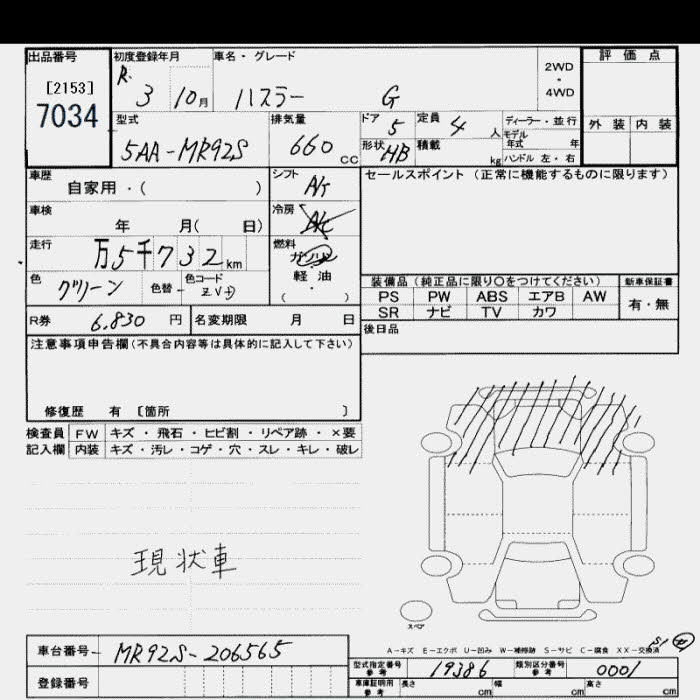 出品番号 初度登録年月 車名・グレード 2WD・4WD 評価点
[2153] R. 3 10月 ハスラー G
7034
型式 排気量 ドア 5 定員 4人 ディーラー・並行 外装 内装
5AA-MR92S 660cc 形状 HB 積載 kg モデル年式 年
ハンドル 左・右
車歴 自家用・( ) シフト A/T セールスポイント (正常に機能するものに限ります)
車検 年 月( 日) 冷房 A/C
走行 万5千732km 燃料 ガソリン
軽・油
( )
色 グリーン 色替- 色コード
装備品 (純正品に限り○をつけてください) 新車保証書
PS PW ABS エアB AW 有・無
SR ナビ TV カワ
R券 6,830円 名変期限 月 日 後日品
注意事項申告欄(不具合内容等は具体的に記入して下さい)
修復歴 有 〔箇所 〕
検査員 FW キズ・飛石・ヒビ割・リペア跡・×要
記入欄 内装 キズ・汚レ・コゲ・穴・スレ・キレ・破レ
現状車
スペア
A-キズ E-エクボ U-凹み W-補修跡 S-サビ C-腐食 XX-交換済
車台番号- MR92S-206565
型式指定番号 参考 19386 類別区分番号 参考 0001
登録番号 車庫証明用 参考 長さ cm 幅 cm 高さ cm